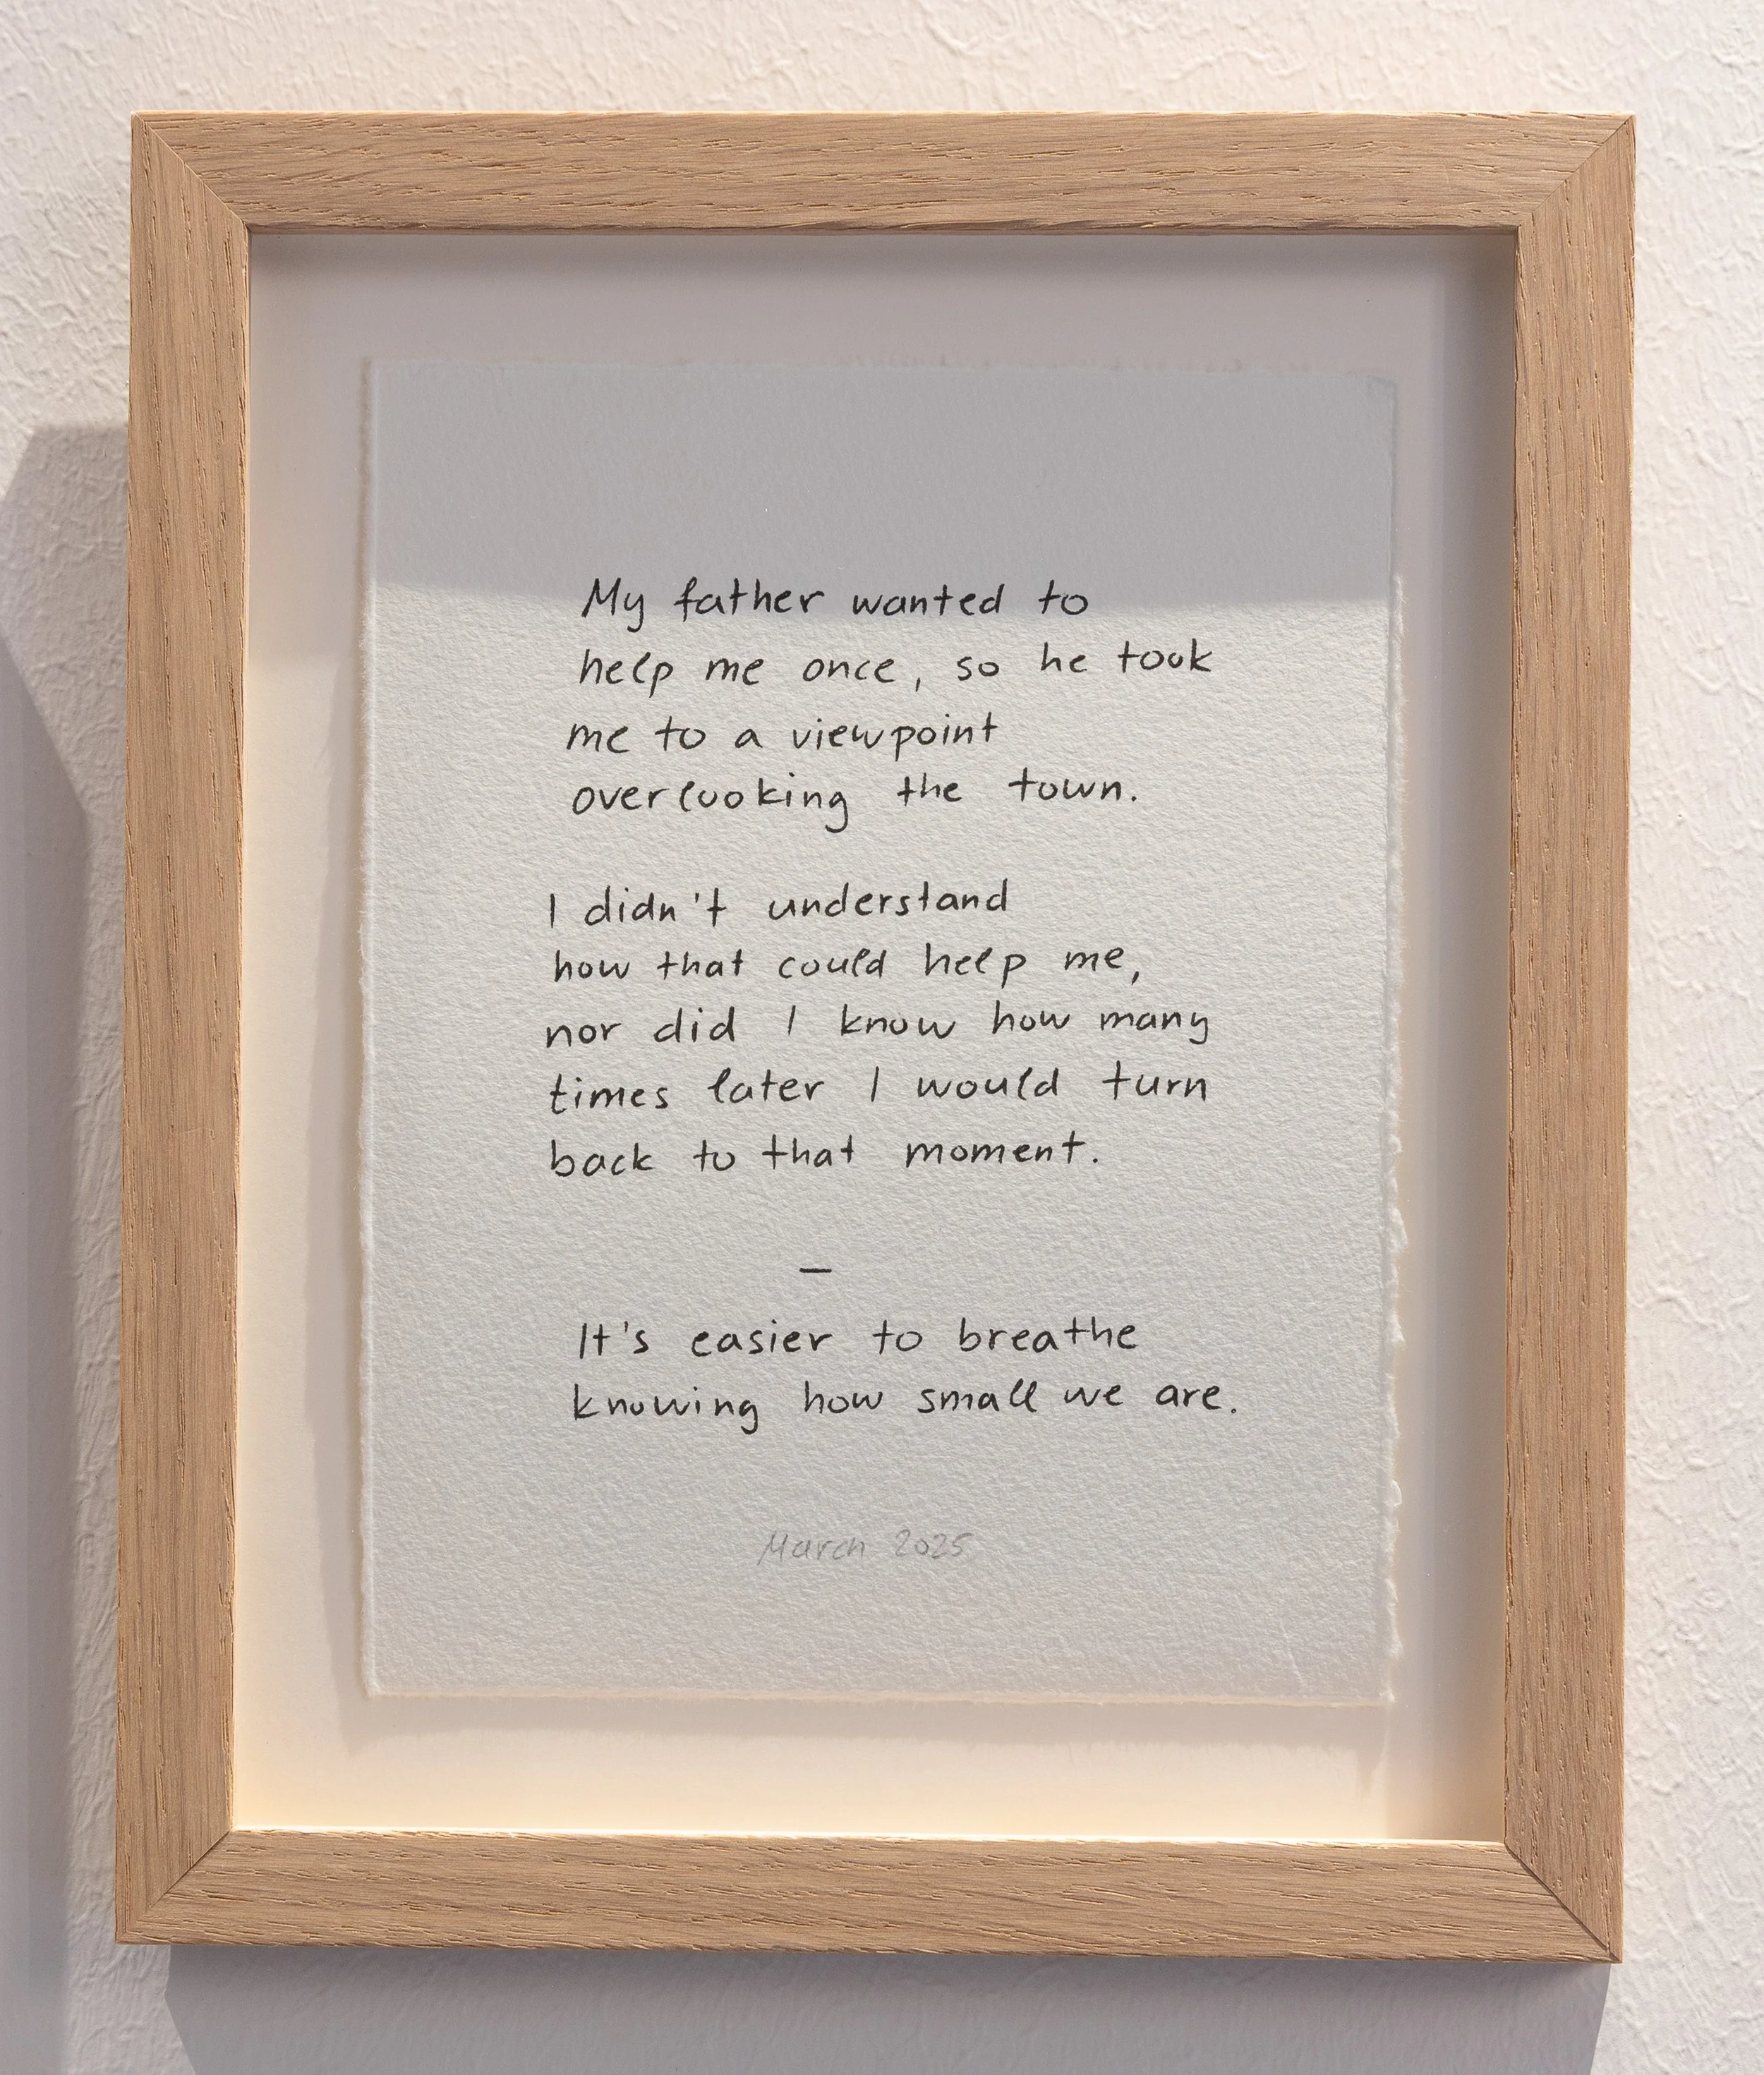 My father wanted to
help me once, so he took
me to a viewpoint
overlooking the town.
I didn't understand
how that could help me,
nor did I know how many
times later I would turn
back to that moment.
—
It's easier to breathe
knowing how small we are.
March 2025